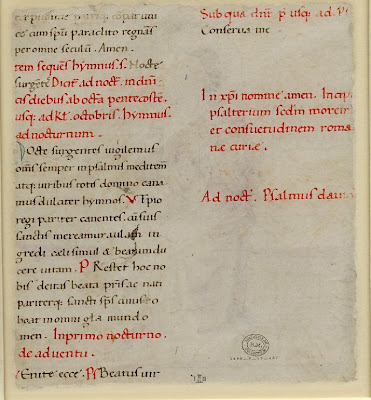 es cum spu paraclito regnas
per omne seculu. Amen.
tem seques hymnus. s. Nocte
surgete Dicit. ad noct. in dnu
cis diebus ab octa pentecoste.
usq; ad kl. octobris. hymnus.
ad nocturnum.
Octe surgentes vigilemus
oms semper in psalmis meditem
atq; viribus totis domino cana
mus dulciter hymnos. Ut pio
regi pariter canentes. cu suis
sanctis mereamur aulam in
gredi celi simul & beatam du
cere vitam. P Restet hoc no
bis deitas beata pris ac nati
pariterq; sancti sps cuius
boat in omni gla mundo
men. In primo nocturno.
de adventu.
Enite ecce. Ps Beatus vir
Sub qua dnr p usq; ad
Conserva me
In xpi nomine amen. Incip
psalterium sedm morem
et consuetudinem roma
ne curie.
Ad noct. Psalmus david